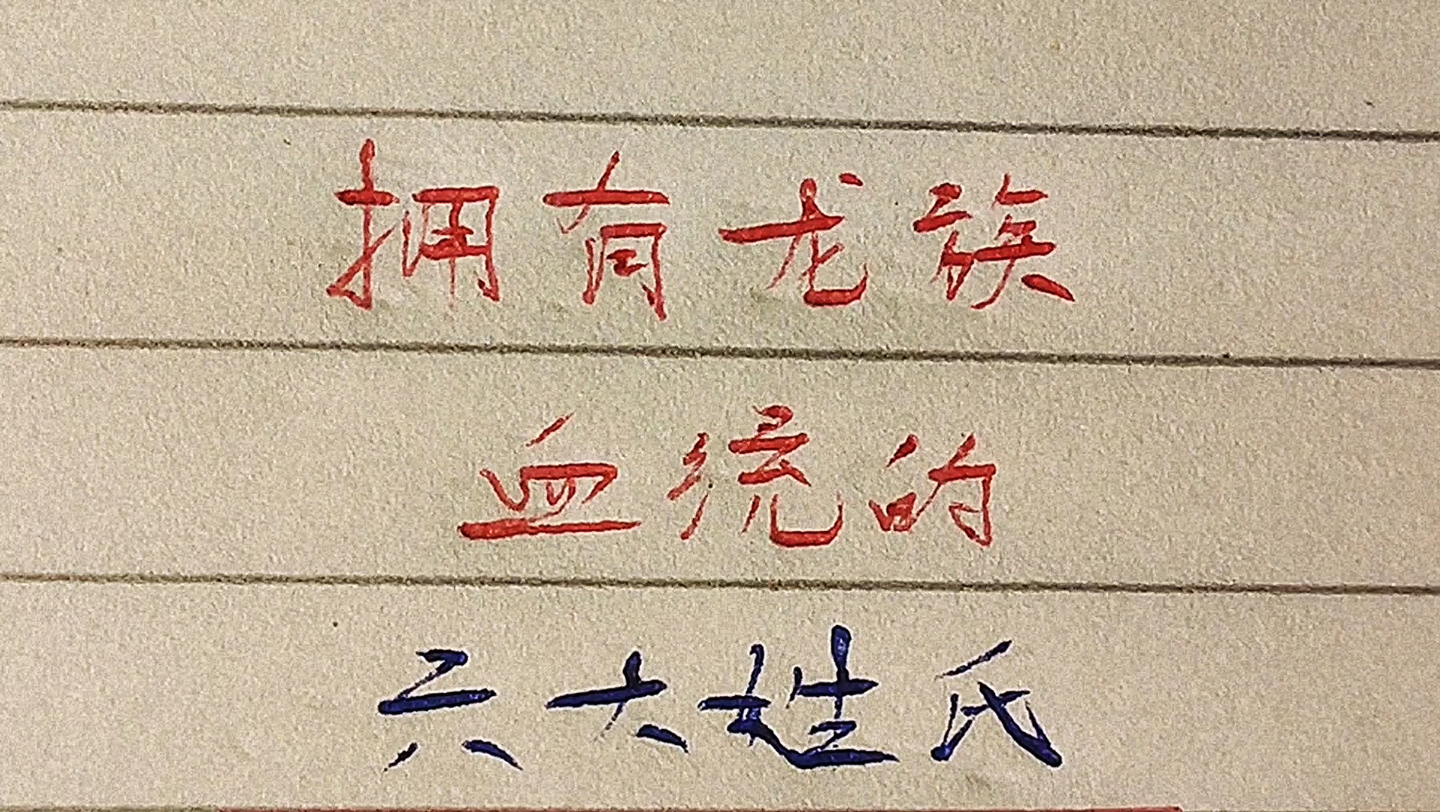 拥有龙族
血统的
六大姓氏